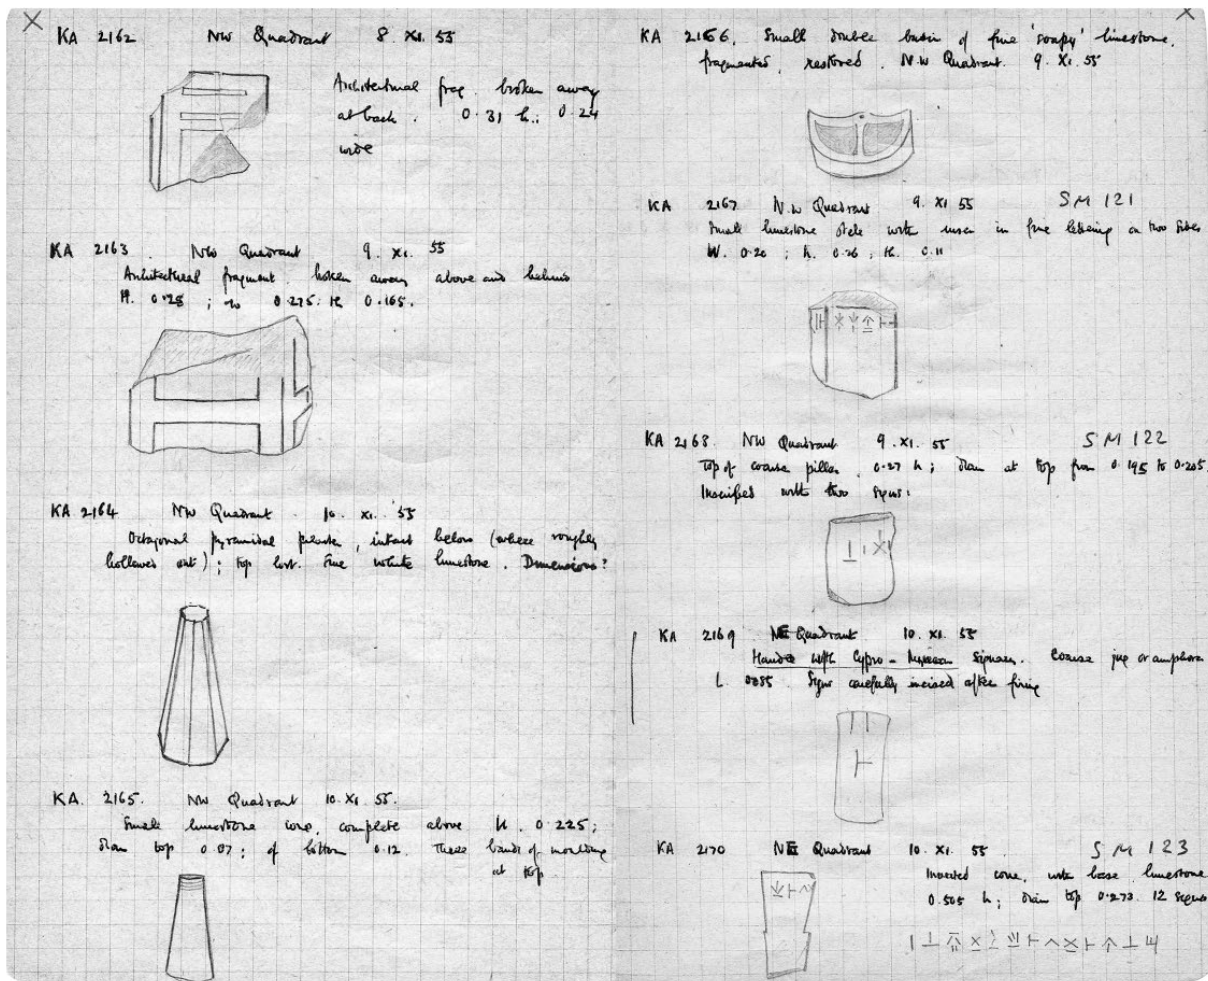 KA 2162 NW Quadrant 8. XI. 55
Architectural frag. broken away
at back. 0.31 h.; 0.24
wide
KA 2163. NW Quadrant 9. XI. 55
Architectural fragment. broken away above and behind
H. 0.28; w 0.275; th 0.165.
KA 2164 NW Quadrant 10. XI. 55
Octagonal pyramidal, intact below (where roughly
hollowed out); top lost. Fine white limestone. Dimensions?
KA. 2165. NW Quadrant 10. XI. 55.
Small limestone cone, complete above H. 0.225;
diam top 0.07; of bottom 0.12. Three bands of moulding
at top
KA 2166. Small double basin of fine 'soapy' limestone,
fragmented, restored. N.W Quadrant. 9. XI. 55
KA 2167 N.W Quadrant 9. XI 55 SM 121
Small limestone stele with inscr in fine lettering on two sides
W. 0.20; h. 0.26; th. 0.11
KA 2168. NW Quadrant 9. XI. 55 SM 122
Top of coarse pillar. 0.27 h; diam at top from 0.195 to 0.205.
Inscribed with two signs:
KA 2169 NE Quadrant 10. XI. 55
Handle with Cypro-Minoan Signs. Coarse jug or amphora
L. 0.085. Signs carefully incised after firing
KA 2170 NE Quadrant 10. XI. 55 SM 123
Inverted cone, with base, limestone
0.505 h; diam top 0.273. 12 signs